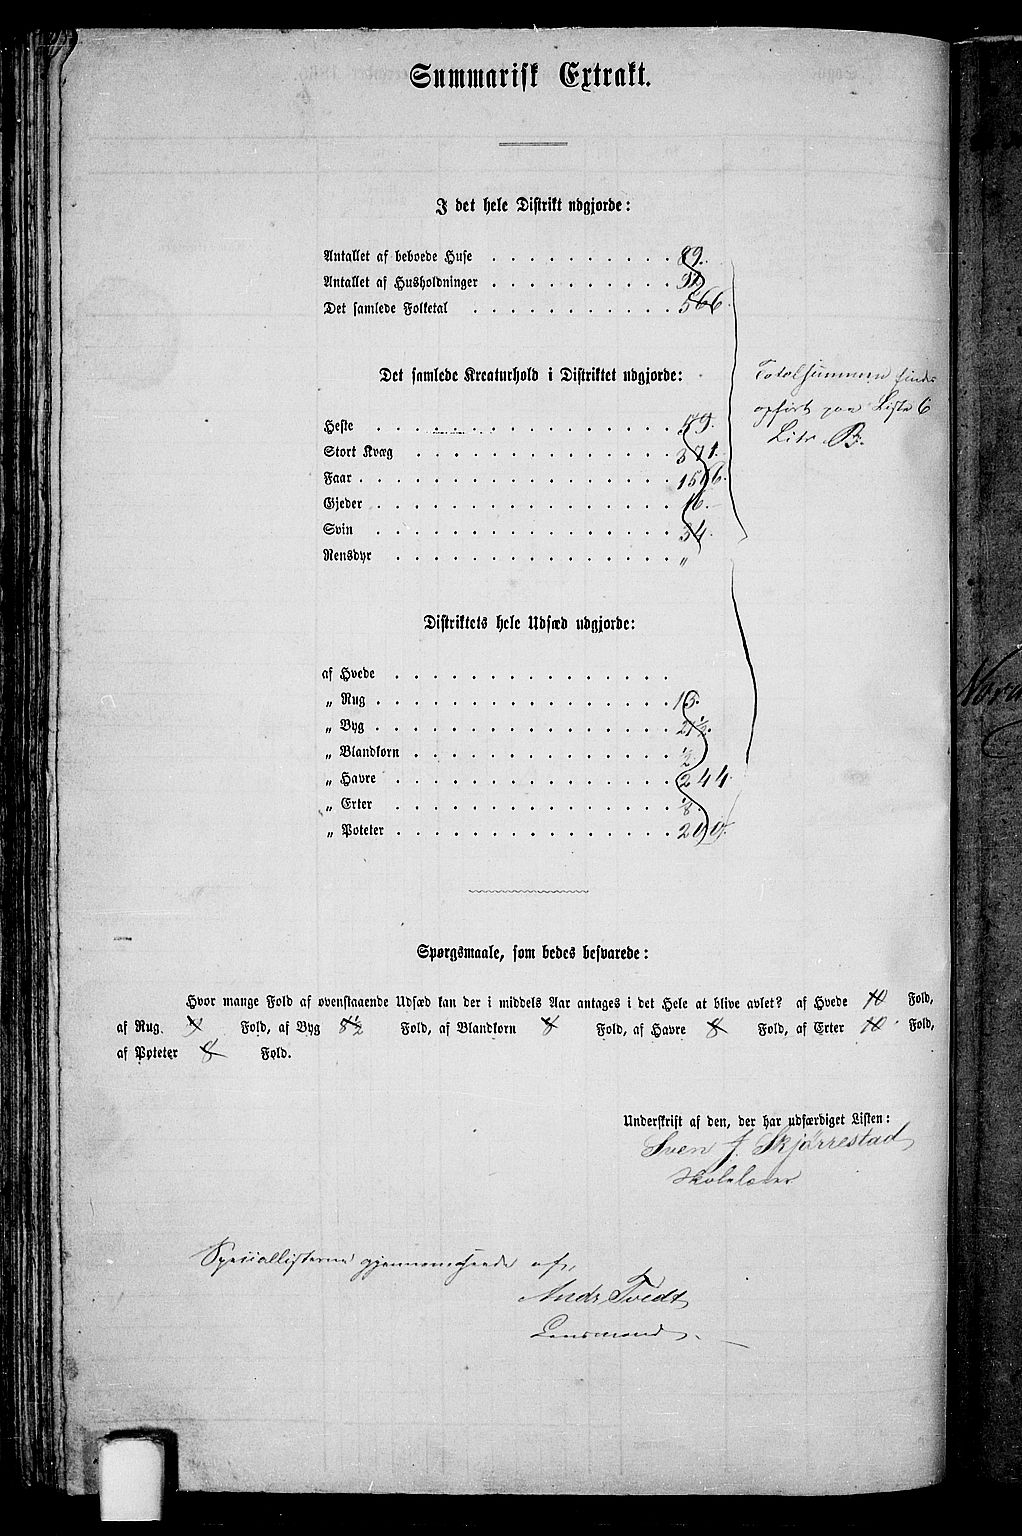 Summarisk Extrakt.
I det hele Distrikt udgjorde:
Antallet af beboede Huse . . . . . . . . . . 89.
Antallet af Husholdninger . . . . . . . . . .
Det samlede Folketal . . . . . . . . . . . 566
Det samlede Kreaturhold i Distriktet udgjorde:
Totalsummen findes
opført paa Liste 6
Litr. B.
Heste . . . . . . . . . . . . . . . . 79.
Stort Kvæg . . . . . . . . . . . . . . 371.
Faar . . . . . . . . . . . . . . . . . 1566.
Gjeder . . . . . . . . . . . . . . . . 16.
Svin . . . . . . . . . . . . . . . . 34.
Rensdyr . . . . . . . . . . . . . . . "
Distriktets hele Udsæd udgjorde:
af Hvede . . . . . . . . . . . . . . .
„ Rug . . . . . . . . . . . . . . . . 15.
„ Byg . . . . . . . . . . . . . . . . 21½.
„ Blandkorn . . . . . . . . . . . . . ½
„ Havre . . . . . . . . . . . . . . . 244.
„ Erter . . . . . . . . . . . . . . . ⅛.
„ Poteter . . . . . . . . . . . . . . 290.
Spørgsmaale, som bedes besvarede:
Hvor mange Fold af ovenstaaende Udsæd kan der i middels Aar antages i det Hele at blive avlet? af Hvede 10 Fold,
af Rug. 9 Fold, af Byg 8½ Fold, af Blandkorn 8 Fold, af Havre 8 Fold, af Erter 10. Fold,
af Poteter 8 Fold.
Underskrift af den, der har udfærdiget Listen:
Sven J. Skjörrestad
Skolelærer
Speciallisterne gjennemseede af,
Andr Tvedt
Lensmand.